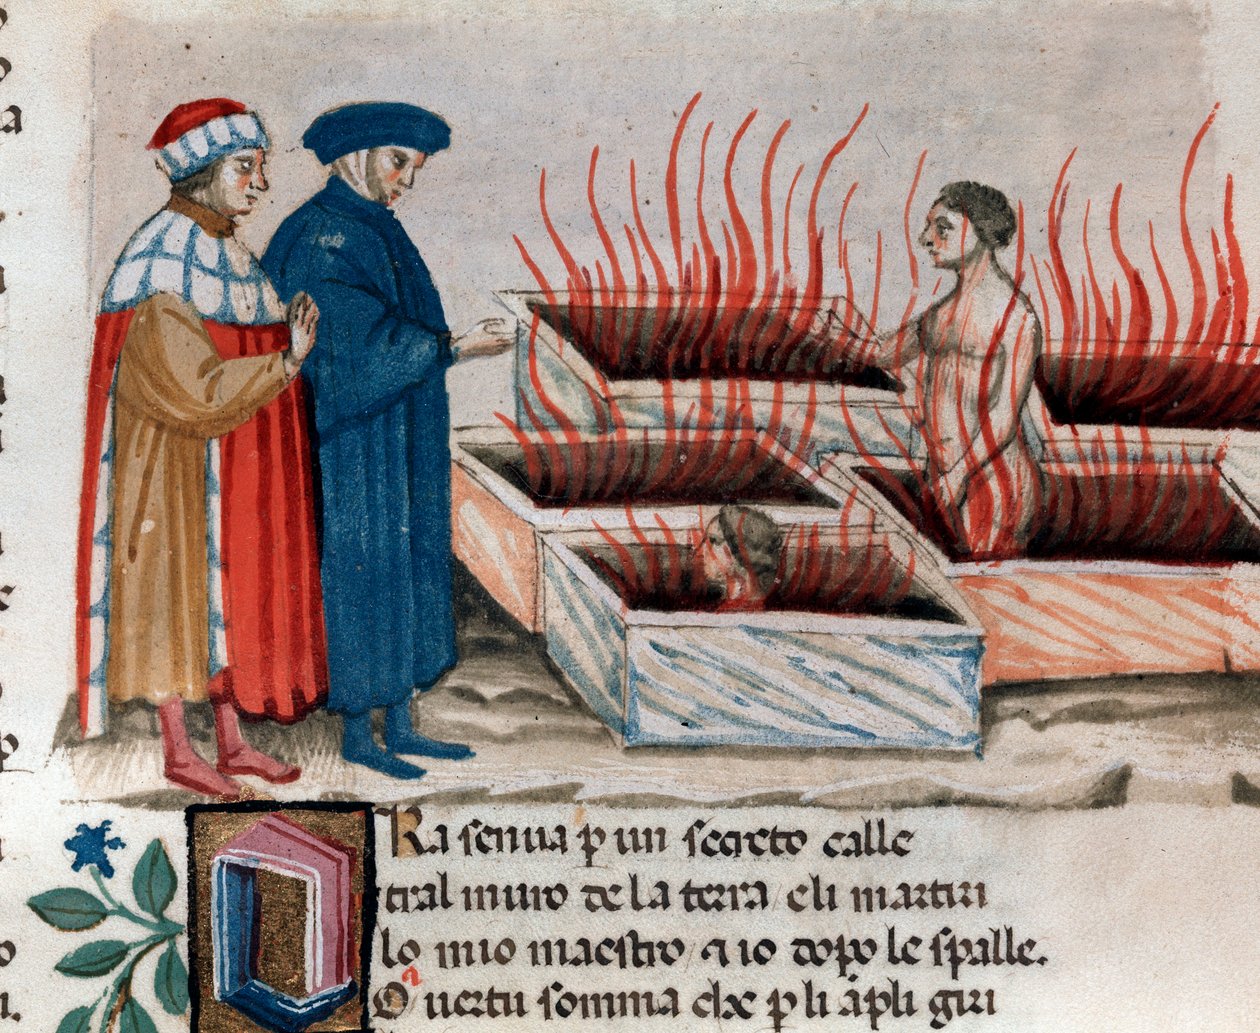 ORa senua p un secreto calle
tral muro de la terra / eli martiri
lo mio maestro / ⁊ io dopo le spalle.
O uertu somma che p li ápli giri